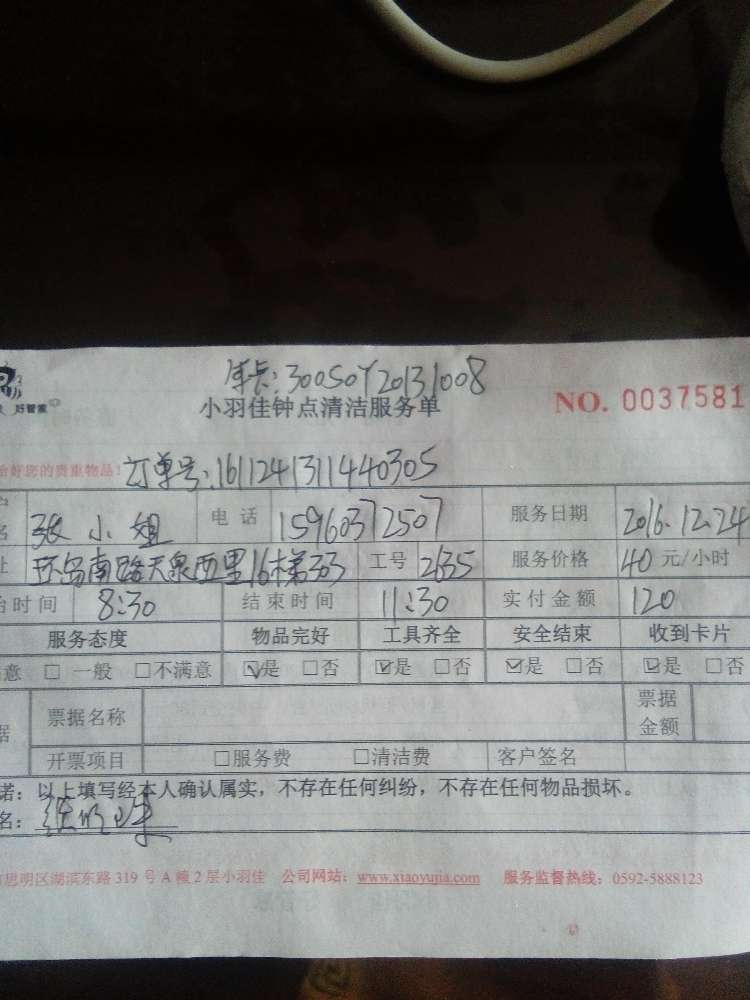 年卡:30050Y20131008
好智家
小羽佳钟点清洁服务单 NO. 0037581
好您的贵重物品! 订单号:1611241311440305
名 张小姐 电话 15960372507 服务日期 2016.12.24
址 环岛南路天泉西里16梯303 工号 2635 服务价格 40元/小时
始时间 8:30 结束时间 11:30 实付金额 120
服务态度 物品完好 工具齐全 安全结束 收到卡片
意 □ 一般 □不满意 ☑是 □否 ☑是 □否 ☑是 □否 ☑是 □否
据 票据名称 票据金额
开票项目 □服务费 □清洁费 客户签名
诺:以上填写经本人确认属实,不存在任何纠纷,不存在任何物品损坏。
名:
思明区湖滨东路 319 号 A 幢 2 层小羽佳 公司网站:www.xiaoyujia.com 服务监督热线:0592-5888123